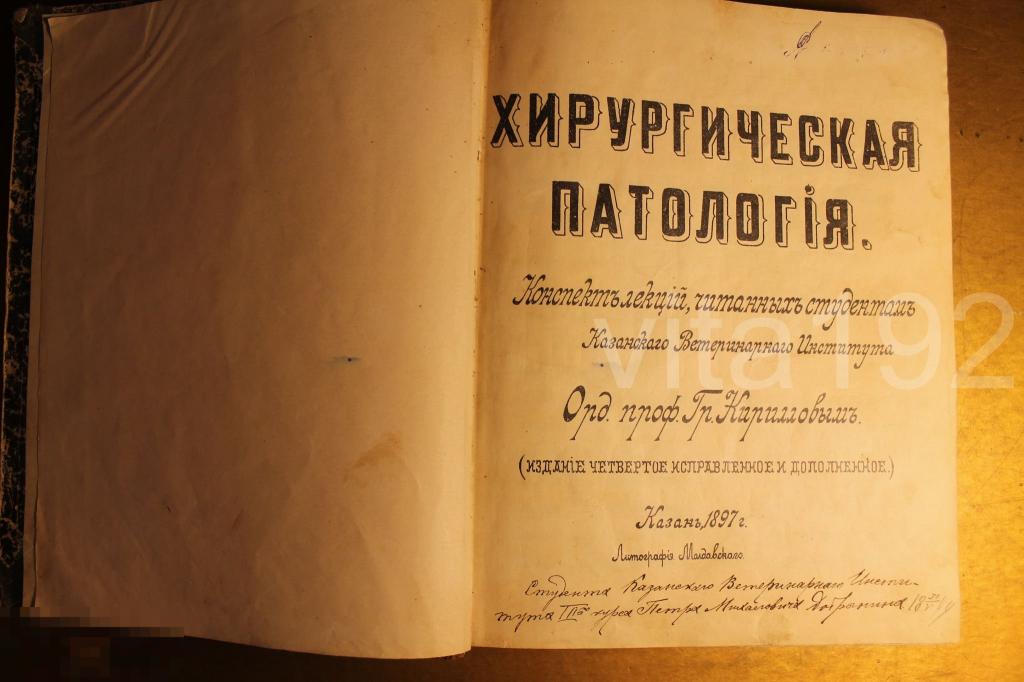 ХИРУРГИЧЕСКАЯ
ПАТОЛОГІЯ.
Конспектъ лекцій, читанныхъ студентамъ
Казанскаго Ветеринарнаго Института
Орд. проф. Гр. Кирилловымъ.
(ИЗДАНІЕ ЧЕТВЕРТОЕ ИСПРАВЛЕННОЕ И ДОПОЛНЕННОЕ.)
Казань, 1897 г.
Литографія
Студента Казанскаго Ветеринарнаго Инсти-
тута III го курса Петра Михайловича
vita192